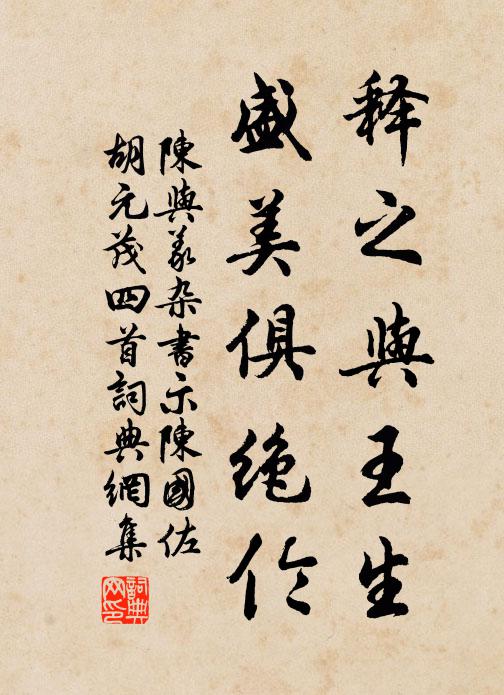 释之與王生
盛美俱绝伦
陳與義杂書示陳國佐
胡元茂四首詞典網集
詞典網印